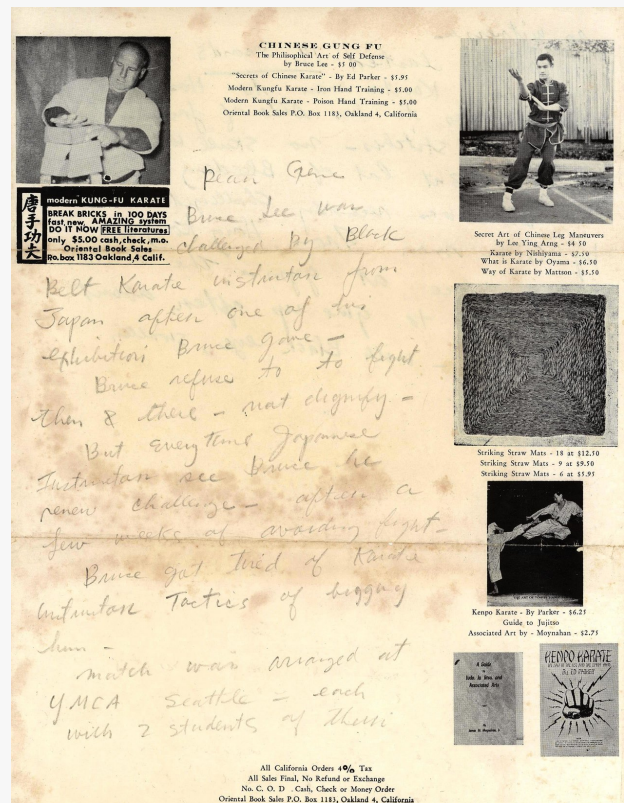 CHINESE GUNG FU
The Philisophical Art of Self Defense
by Bruce Lee - $5 00
"Secrets of Chinese Karate" - By Ed Parker - $5.95
Modern Kungfu Karate - Iron Hand Training - $5.00
Modern Kungfu Karate - Poison Hand Training - $5.00
Oriental Book Sales P.O. Box 1183, Oakland 4, California
唐手功夫
modern KUNG-FU KARATE
BREAK BRICKS in 100 DAYS
fast, new, AMAZING system
DO IT NOW FREE literatures
only $5.00 cash, check, m.o.
Oriental Book Sales
P.o. box 1183 Oakland,4 Calif.
Dear Gene
Bruce Lee was
challenged by Black
Belt Karate instructor from
Japan after one of his
exhibition Bruce gave -
Bruce refuse to to fight
then & there - not dignify -
But everytime Japanese
Instructor see Bruce he
renew challenge - after a
few weeks of avoiding fight -
Bruce got tired of Karate
instructor Tactics of bugging
him -
match was arranged at
YMCA Seattle - each
with 2 students of their
Secret Art of Chinese Leg Maneuvers
by Lee Ying Arng - $4 50
Karate by Nishiyama - $7.50
What is Karate by Oyama - $6.50
Way of Karate by Mattson - $5.50
Striking Straw Mats - 18 at $12.50
Striking Straw Mats - 9 at $9.50
Striking Straw Mats - 6 at $5.95
Kenpo Karate - By Parker - $6.25
Guide to Jujitso
Associated Art by - Moynahan - $2.75
A Guide
to
Judo Ju Jitsu and
Associated Arts
by
KENPO KARATE
BY ED PARKER
All California Orders 4% Tax
All Sales Final, No Refund or Exchange
No. C. O. D . Cash, Check or Money Order
Oriental Book Sales P.O. Box 1183, Oakland 4, California